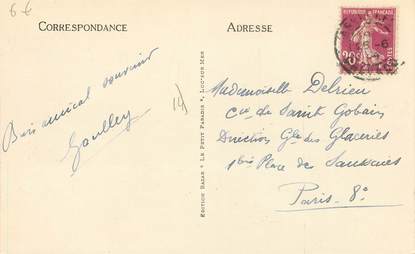 6 €
CORRESPONDANCE
ADRESSE
Bien amical souvenir
Goulley
14
EDITION BAZAR "LE PETIT PARADIS", LUC-SUR-MER
20c
POSTES
Mademoiselle Delrieu
Cie de Saint Gobain
Direction Gle des Glaceries
1 bis Place de Saussaies
Paris-8e